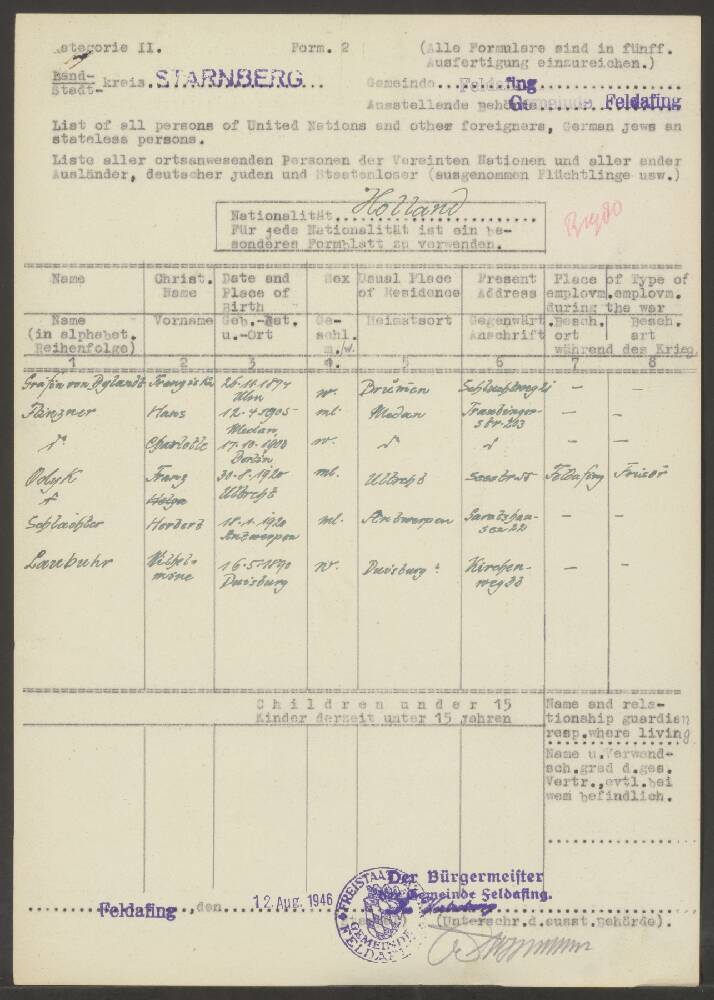 Kategorie II. Form. 2 (Alle Formulare sind in fünff.
Ausfertigung einzureichen.)
Land-
Stadt- kreis. STARNBERG Gemeinde Feldafing
Ausstellende Behörde Gemeinde Feldafing
List of all persons of United Nations and other foreigners, German jews an
stateless persons.
Liste aller ortsanwesenden Personen der Vereinten Nationen und aller ander
Ausländer, deutscher juden und Staatenloser (ausgenommen Flüchtlinge usw.)
Nationalität Holland
Für jede Nationalität ist ein be-
sonderes Formblatt zu verwenden.
Name Christ. Date and Sex Usual Place Present Place of Type of
Name Place of of Residence Address employm. employm.
Birth during the war
Name Vorname Geb.-Dat. Ge- Heimatsort Gegenwärt. Besch. Besch.
(in alphabet. u.-Ort schl. Anschrift ort art
Reihenfolge) m./w. während des Krieg
1 2 3 4. 5 6 7 8
Gräfin von Bylandt Franziska 26.11.1874 w. Brummen Schluchtweg - -
Ulm
Hans 12.4.1905 ml. Medan Traubinger- - -
Medan str.
Charlotte 17.10.1900 w.
Berlin
Franz 30.8.1920 ml. Utrecht Seestr. Feldafing Frisör
Helga Utrecht
Schlachter Herbert 18.1.1920 ml. Antwerpen Garatshau- - -
Antwerpen sen 22
Laubuhr Wilhel- 16.5.1890 w. Duisburg Kirchen- - -
mine Duisburg weg
Children under 15
Kinder derzeit unter 15 jahren
Name and rela-
tionship guardian
resp.where living
Name u.Verwand-
sch.grad d.ges.
Vertr.,evtl.bei
wem befindlich.
Der Bürgermeister
der Gemeinde Feldafing.
Feldafing, den 12. Aug. 1946
(Unterschr.d.ausst.Behörde).
FREISTAAT
GEMEINDE
FELDAFING